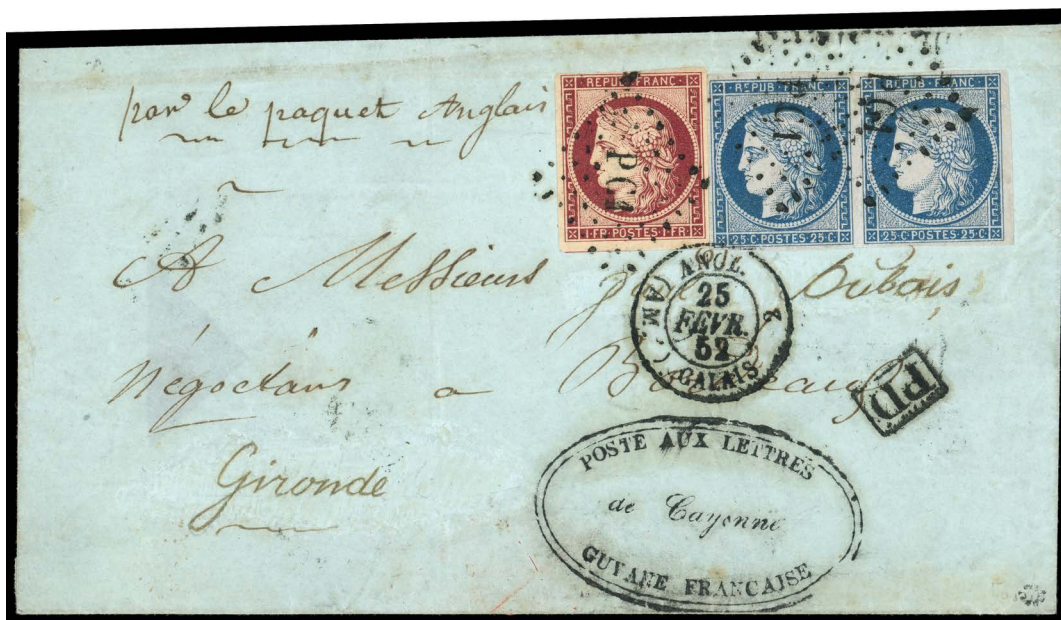 par le paquet Anglais
REPUB·FRANC·
1·FR·POSTES·1·FR
PC1
REPUB·FRANC·
25·C·POSTES·25·C·
PC1
REPUB·FRANC·
25·C·POSTES·25·C·
A Messieurs Dubois,
ANGL.
2
25
FÉVR.
52
AM.
CALAIS
Négocians a Bordeaux
PD
Gironde
POSTE AUX LETTRES
de Cayenne
GUYANE FRANCAISE